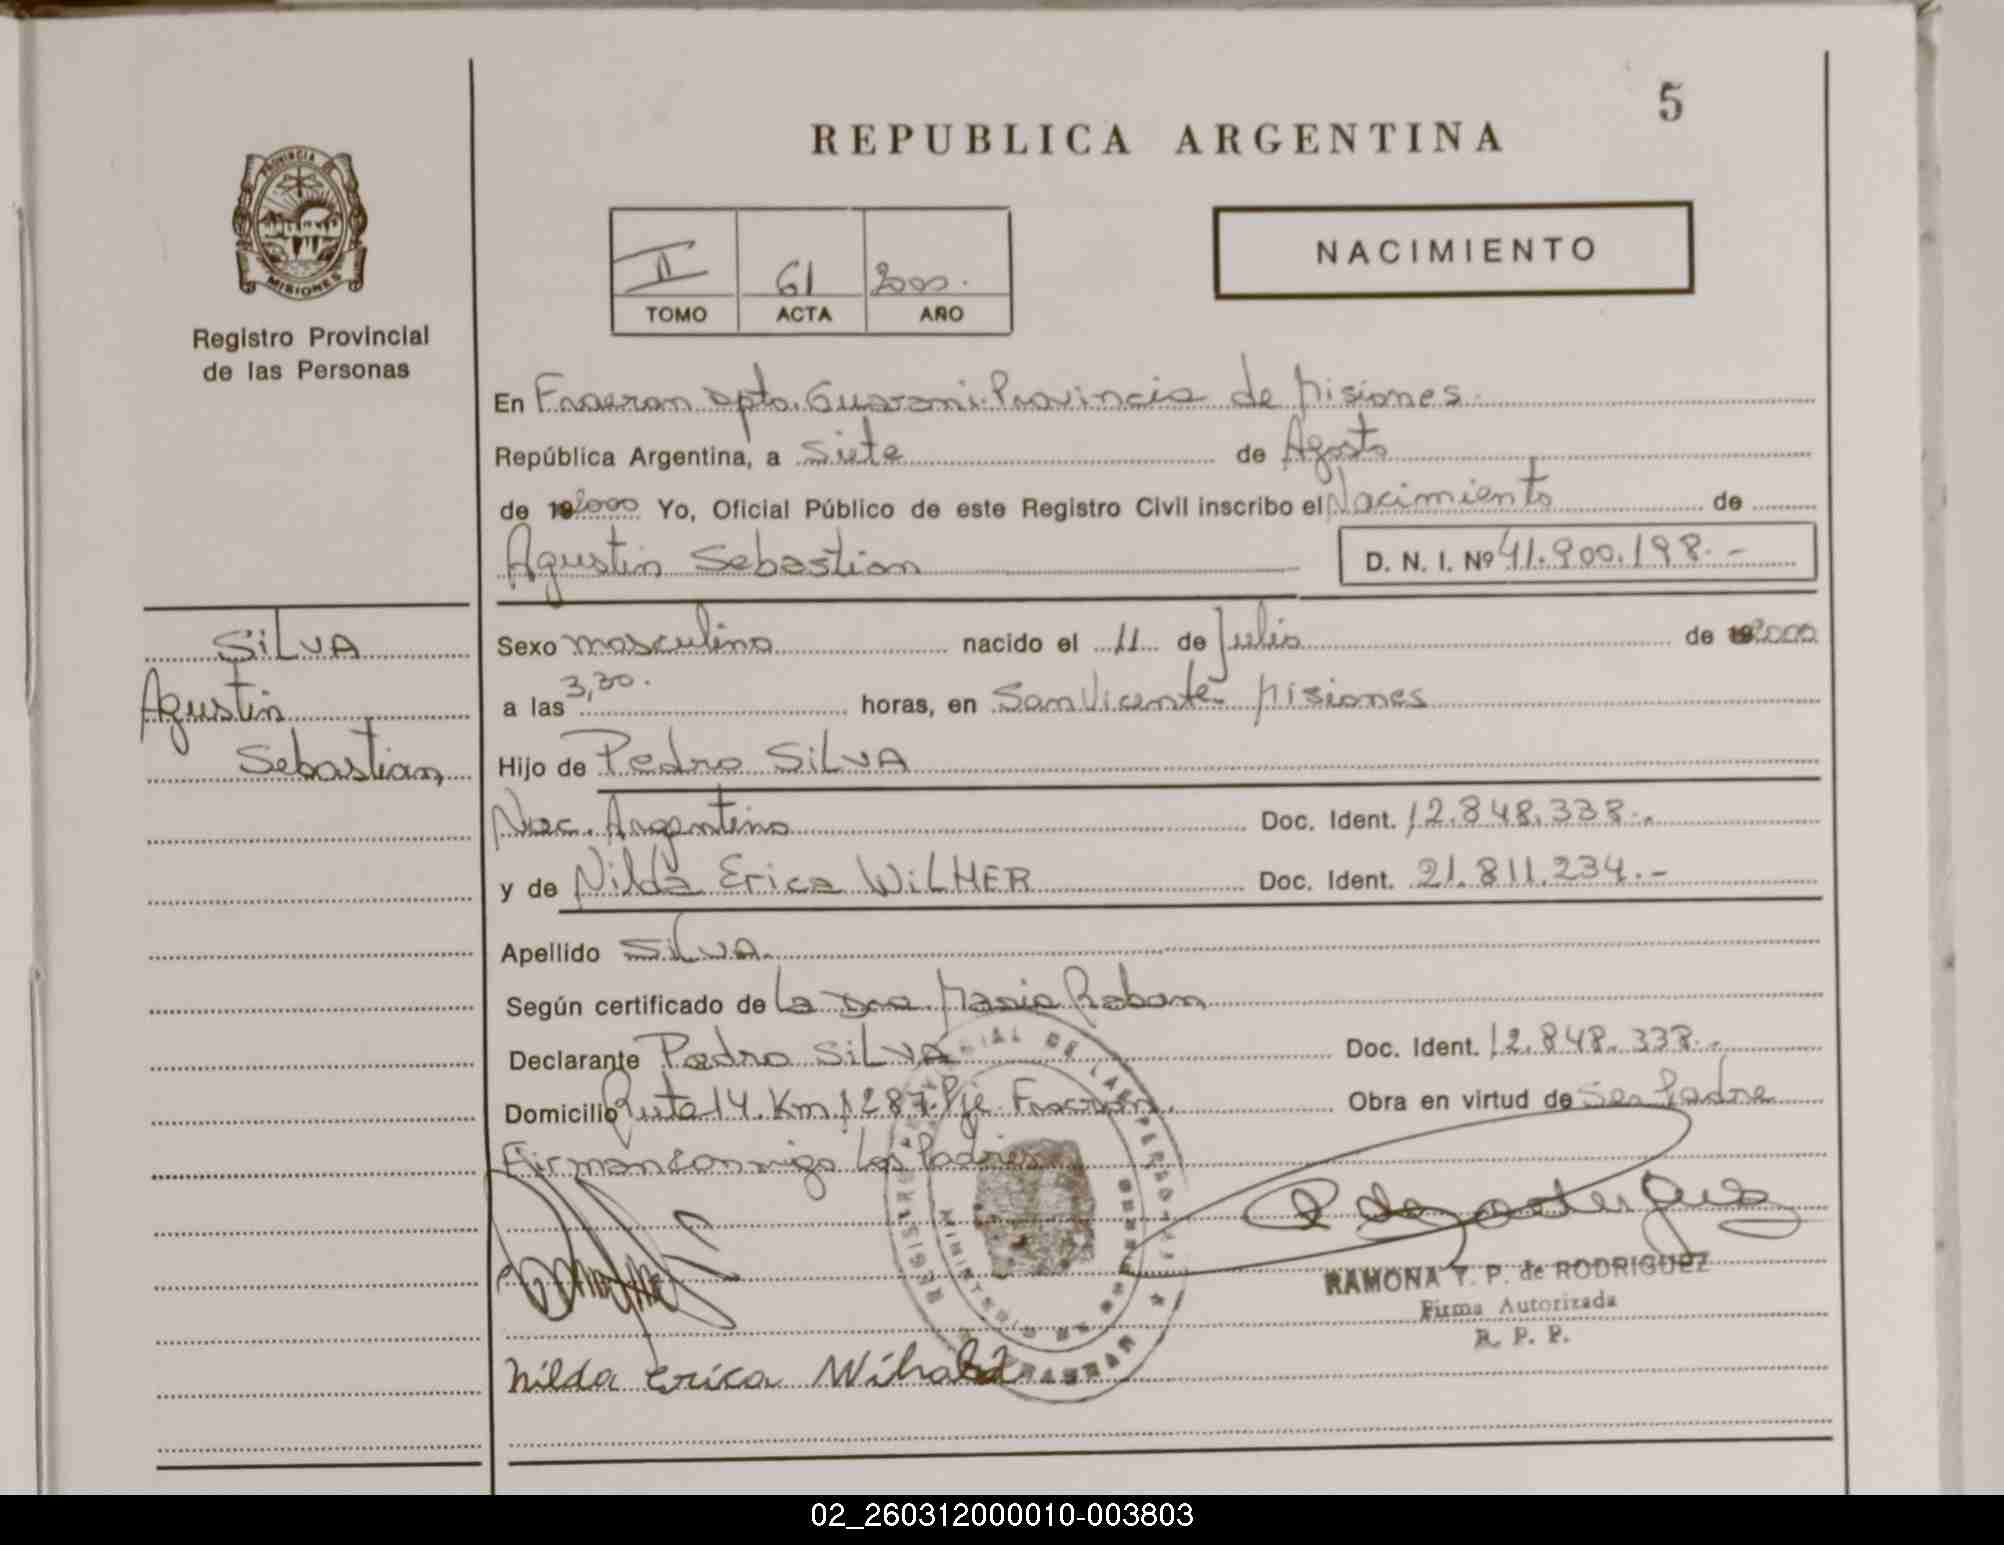 5
REPUBLICA ARGENTINA
PROVINCIA DE
MISIONES
Registro Provincial
de las Personas
II 61 2000.
TOMO ACTA AÑO
NACIMIENTO
En Fracran Dpto. Guarani. Provincia de Misiones.
República Argentina, a Siete de Agosto
de 19 2000 Yo, Oficial Público de este Registro Civil inscribo el Nacimiento de
Agustin Sebastian
D. N. I. Nº 41.900.198.-
SiLVA
Agustin
Sebastian
Sexo masculino nacido el 11 de Julio de 19 2000
a las 3,30. horas, en San Vicente Misiones
Hijo de Pedro SiLVA
Nac. Argentino Doc. Ident. 12.848.338.-
y de Nilda Erica WiLHER Doc. Ident. 21.811.234.-
Apellido SiLVA.
Según certificado de La Dra. Maria Raban
Declarante Pedro SiLVA Doc. Ident. 12.848.338.-
Domicilio Ruta 14. Km 1287. Pje. Fracran. Obra en virtud de Ser Padre
Firman conmigo Los Padres
RAMONA Y. P. de RODRIGUEZ
Firma Autorizada
R. P. P.
Nilda Erica
02_260312000010-003803